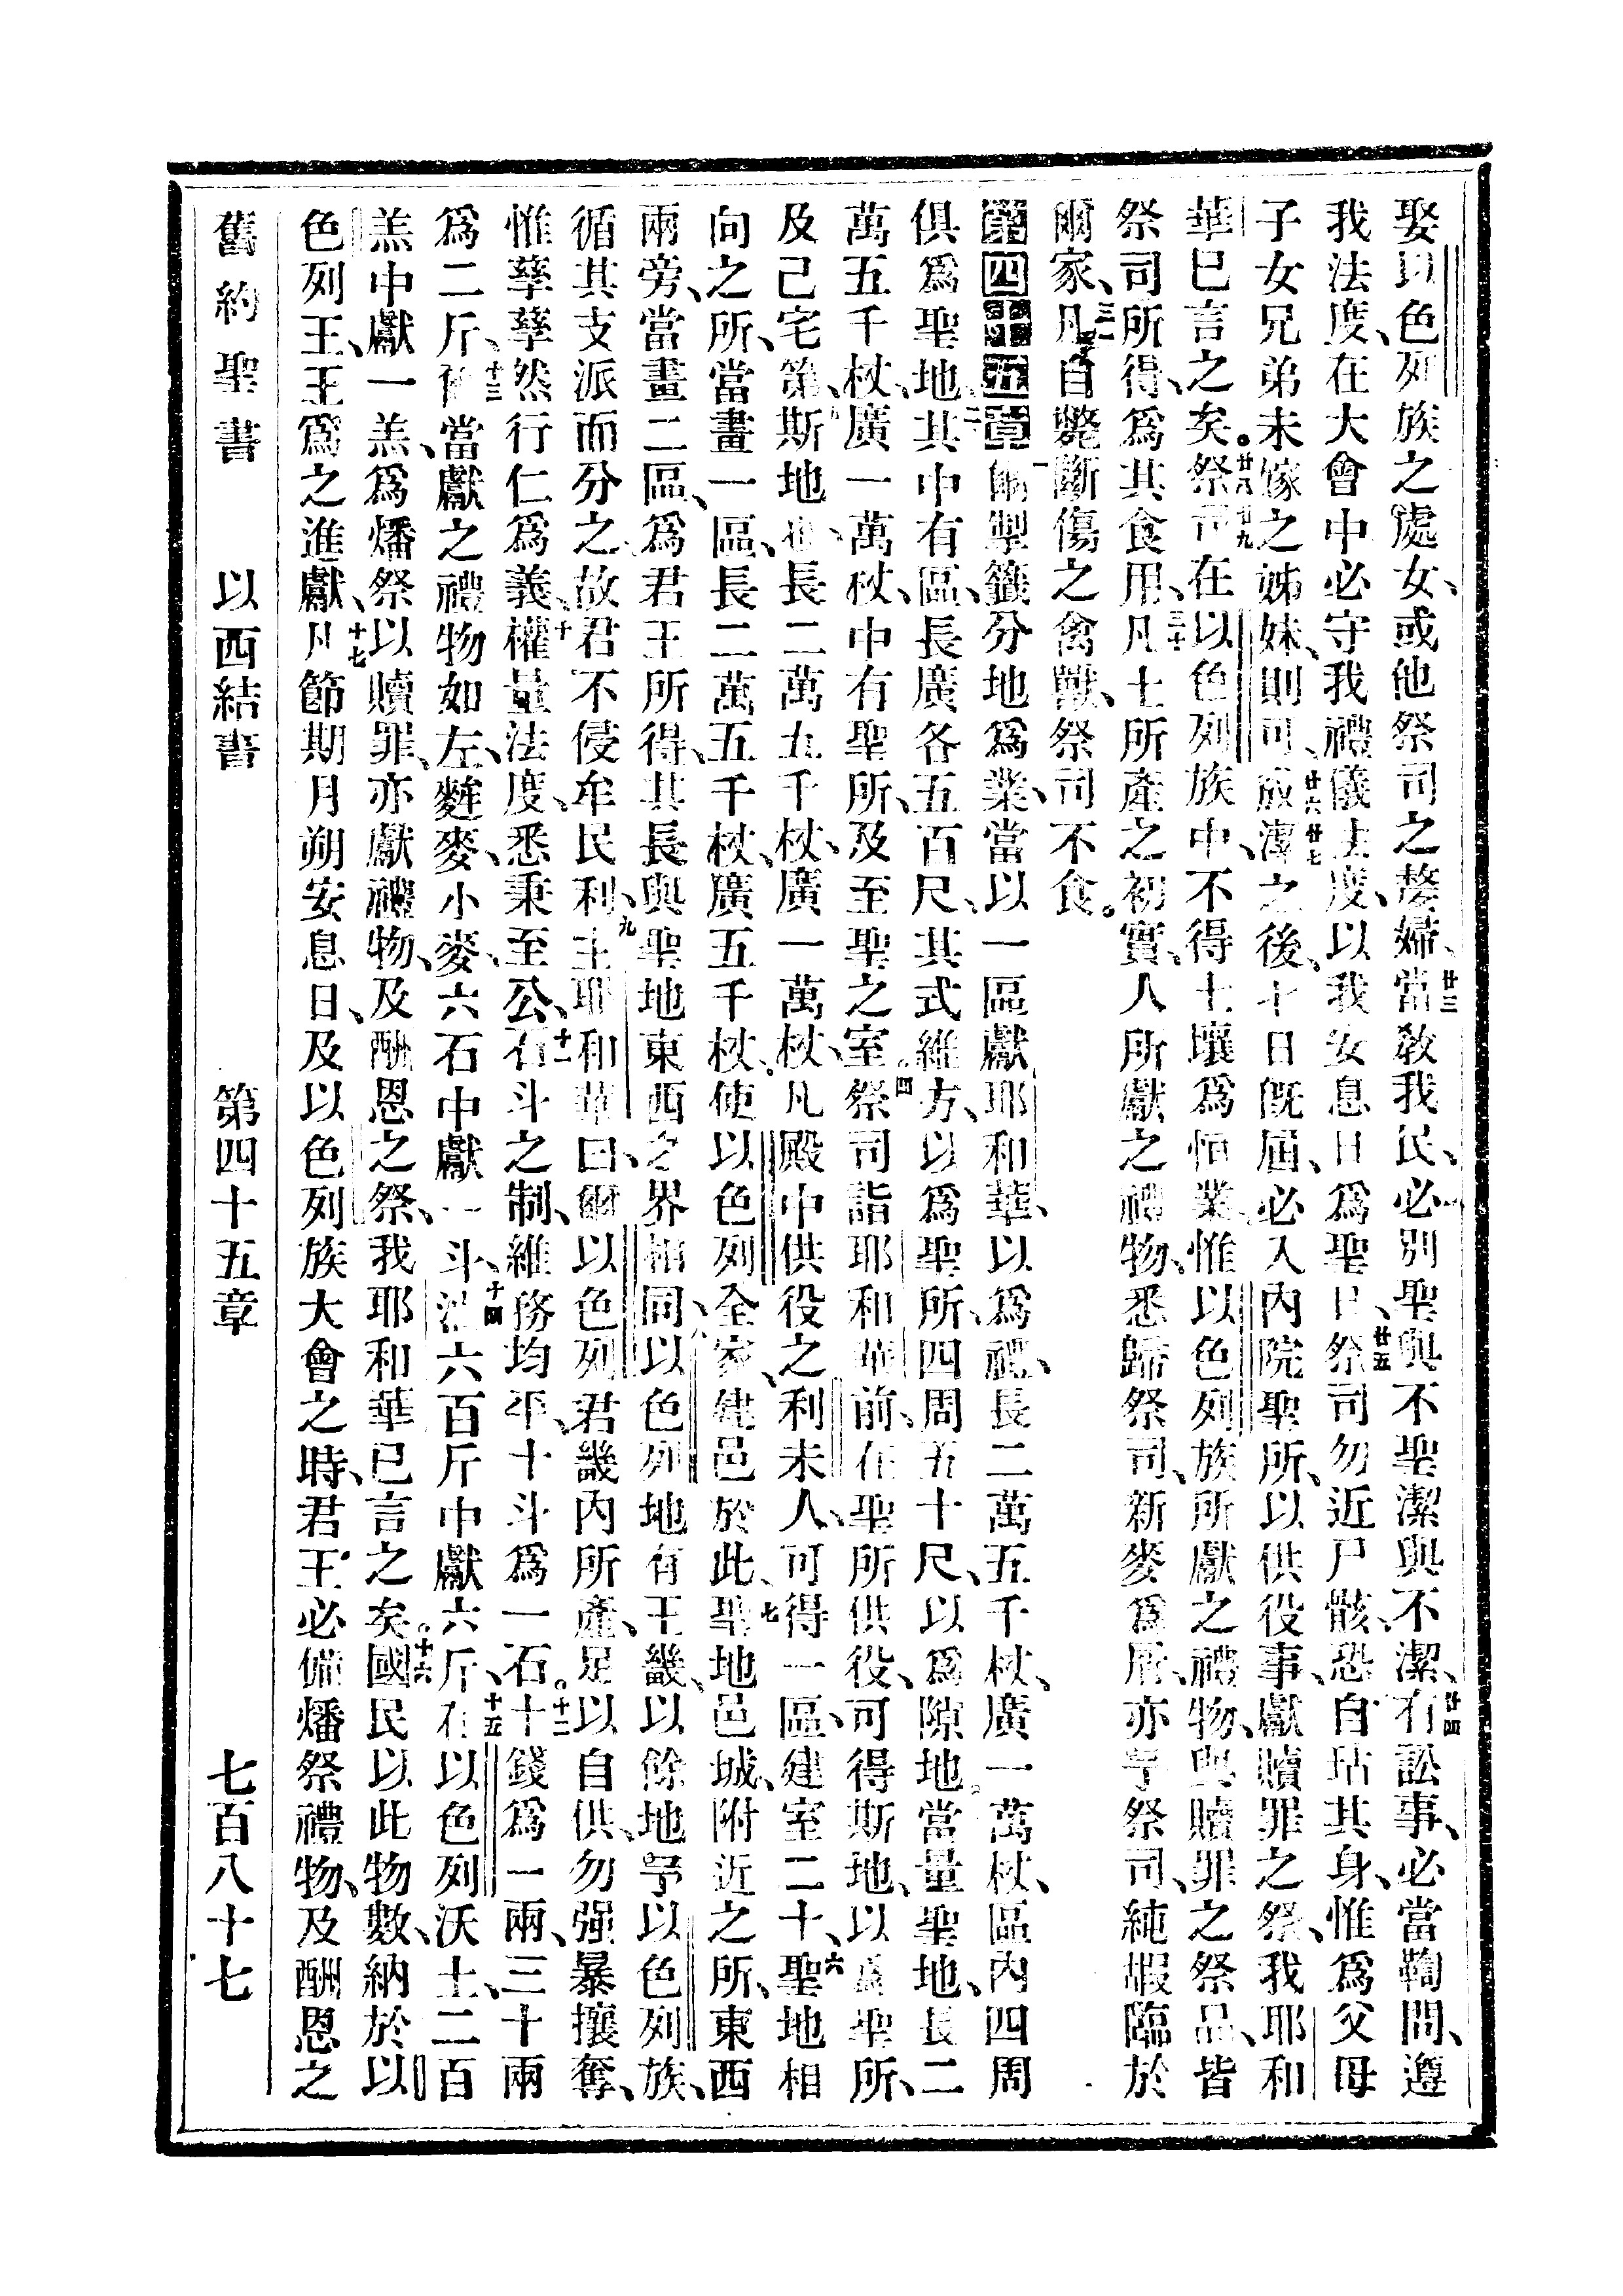 娶以色列族之處女、或他祭司之嫠婦、廿三當教我民、必別聖與不聖潔與不潔、廿四有訟事、必當鞫問、遵
我法度、在大會中必守我禮儀法度、以我安息日爲聖日、廿五祭司勿近尸骸、恐自玷其身、惟爲父母
子女兄弟未嫁之姊妹、則可、廿六成潔之後、廿七七日旣屆、必入內院聖所、以供役事、獻贖罪之祭、我耶和
華已言之矣。廿八祭司在以色列族中、不得土壤爲恒業、惟以色列族所獻之禮物、廿九與贖罪之祭品、皆
祭司所得、爲其食用、三十凡土所產之初實、人所獻之禮物、悉歸祭司、新麥爲屑、亦予祭司、純嘏臨於
爾家、三一凡自斃斷傷之禽獸、祭司不食。
第四十五章 一爾掣籤分地爲業、當以一區獻耶和華、以爲禮、長二萬五千杖、廣一萬杖、區內四周
俱爲聖地、二其中有區、長廣各五百尺、其式維方、以爲聖所、四周五十尺、以爲隙地。當量聖地、長二
萬五千杖、廣一萬杖、中有聖所、及至聖之室。四祭司詣耶和華前、在聖所供役、可得斯地、以爲聖所、
及己宅第、斯地也、長二萬五千杖、廣一萬杖、凡殿中供役之利未人、可得一區、建室二十、六聖地相
向之所、當畫一區、長二萬五千杖、廣五千杖。使以色列全家、建邑於此、七聖地邑城、附近之所、東西
兩旁、當畫二區、爲君王所得、其長與聖地東西之界相同、八以色列地有王畿、以餘地予以色列族、
循其支派而分之、故君不侵牟民利、九主耶和華曰、爾以色列君畿內所產、足以自供、勿强暴攘奪、
惟孳孳然行仁爲義、十權量法度、悉秉至公、十一石斗之制、維務均平、十斗爲一石。十二十錢爲一兩、三十兩
爲二斤、十三當獻之禮物如左、麰麥、小麥、六石中獻一斗、十四油六百斤中獻六斤、十五在以色列沃土、二百
羔中獻一羔、爲燔祭以贖罪、亦獻禮物、及酬恩之祭、我耶和華已言之矣。十六國民以此物數、納於以
色列王、王爲之進獻、十七凡節期月朔安息日、及以色列族大會之時、君王必備燔祭禮物、及酬恩之
舊約聖書 以西結書 第四十五章 七百八十七